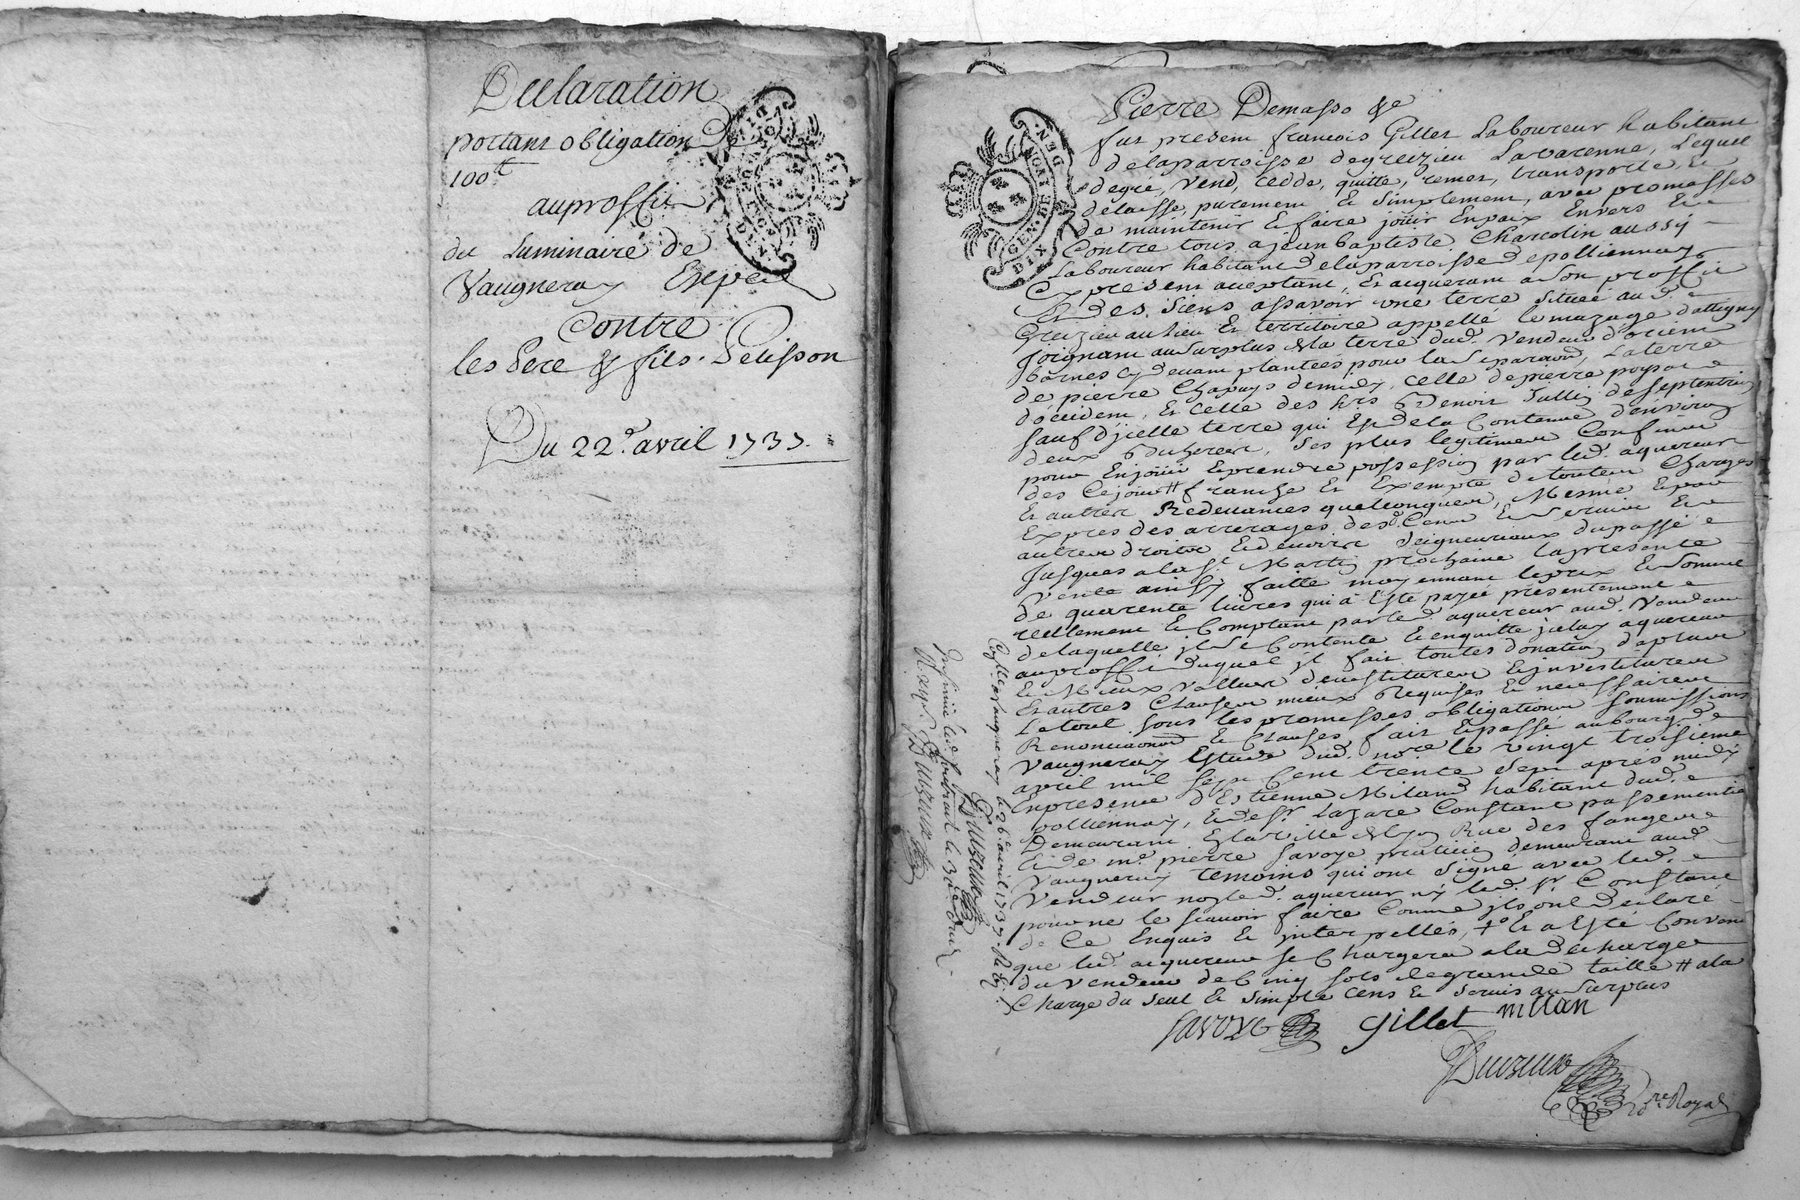 Declaration
portant obligation De
100tt
au proffit
du Luminaire de
Vaugneray
Contre
les Pere & fils Pelisson
Du 22e. avril 1737.
GEN. DE LYON
DIX DEN.
Pierre Demasso &c
fut present francois Gillet Laboureur habitant
delaparroisse degreizieu Lavarenne, Lequel
degré, vend, cedde, quitte, remet, transporte Et
delaisse, purement Et simplement, avec promesses
de maintenir Et faire jouir Enpaix Envers Et
Contre tous, a jean baptiste Charcotin aussy
Laboureur habitant delaparroisse depolliennay
Cy present acceptant, Et acquerant a son proffit
Et des siens assavoir une terre située aud.
Greizieu au lieu Et territoire appellé lemazage d'attigny
Joignant au surplus de la terre dud. Vendeur d'orient
bornes Cy devant plantées pour la separaon, La terre
de pierre Chapuys demidy, celle depierre
d'occident, Et celle des hrs Benoit deseptentrion
sauf d'jcelle terre qui Est dela Contenue d'environ
deux ses plus legitimes Confins
pour Enjouir Et prendre possession par led. aquereur
des Cejourd# franche Et Exempte de toutes Charges
Et autres Redevances quelconques, Mesme Et par
Expres des arrerages des Cens Et Servis Et
autres droits Et devoirs Seigneuriaux dupassé
Jusques a la St. Martin prochaine lapresente
Vente ainsy faitte moyennant leprix Et somme
de quarente livres qui à Esté payée presentement
reellement Et Comptant par led. aquereur aud. Vendeur
delaquelle jl se Contente Et enquitte jcelay aquereur
auproffit duquel jl fait toutes donation d'aplus
Et Mieux Vallue devestiture Et jnvestiture
Et autres Clauses mieux Requises Et necessaires
Le tout sous les promesses obligations soumissions
Renonciaons Et Clauses fait Et passé au bourg de
Vaugneray Estude dud. nore le vingt troisieme
avril mil sept Cent trente sept après midy
Enpresence d'Estienne Milan habitant dud.
pollienay, Et de sr. Lazare Constant passementier
Demeurant Lyon Rue des
Et de me. pierre Savoye praticien demeurant aud.
Vaugneray temoins qui ont signé avec led.
Vendeur non led. aquereur ny led. sr. Constant
pour ne le sçavoir faire Comme jls ont declaré
de Ce Enquis Et jnterpellés, + Et a Esté Convenu
que led. aquereur se Chargera a la decharge
du vendeur de Cinq sols degrande taille # a la
Charge du seul Et simple cens Et servis au surplus
Savoye Gillet millan
nore. Royal